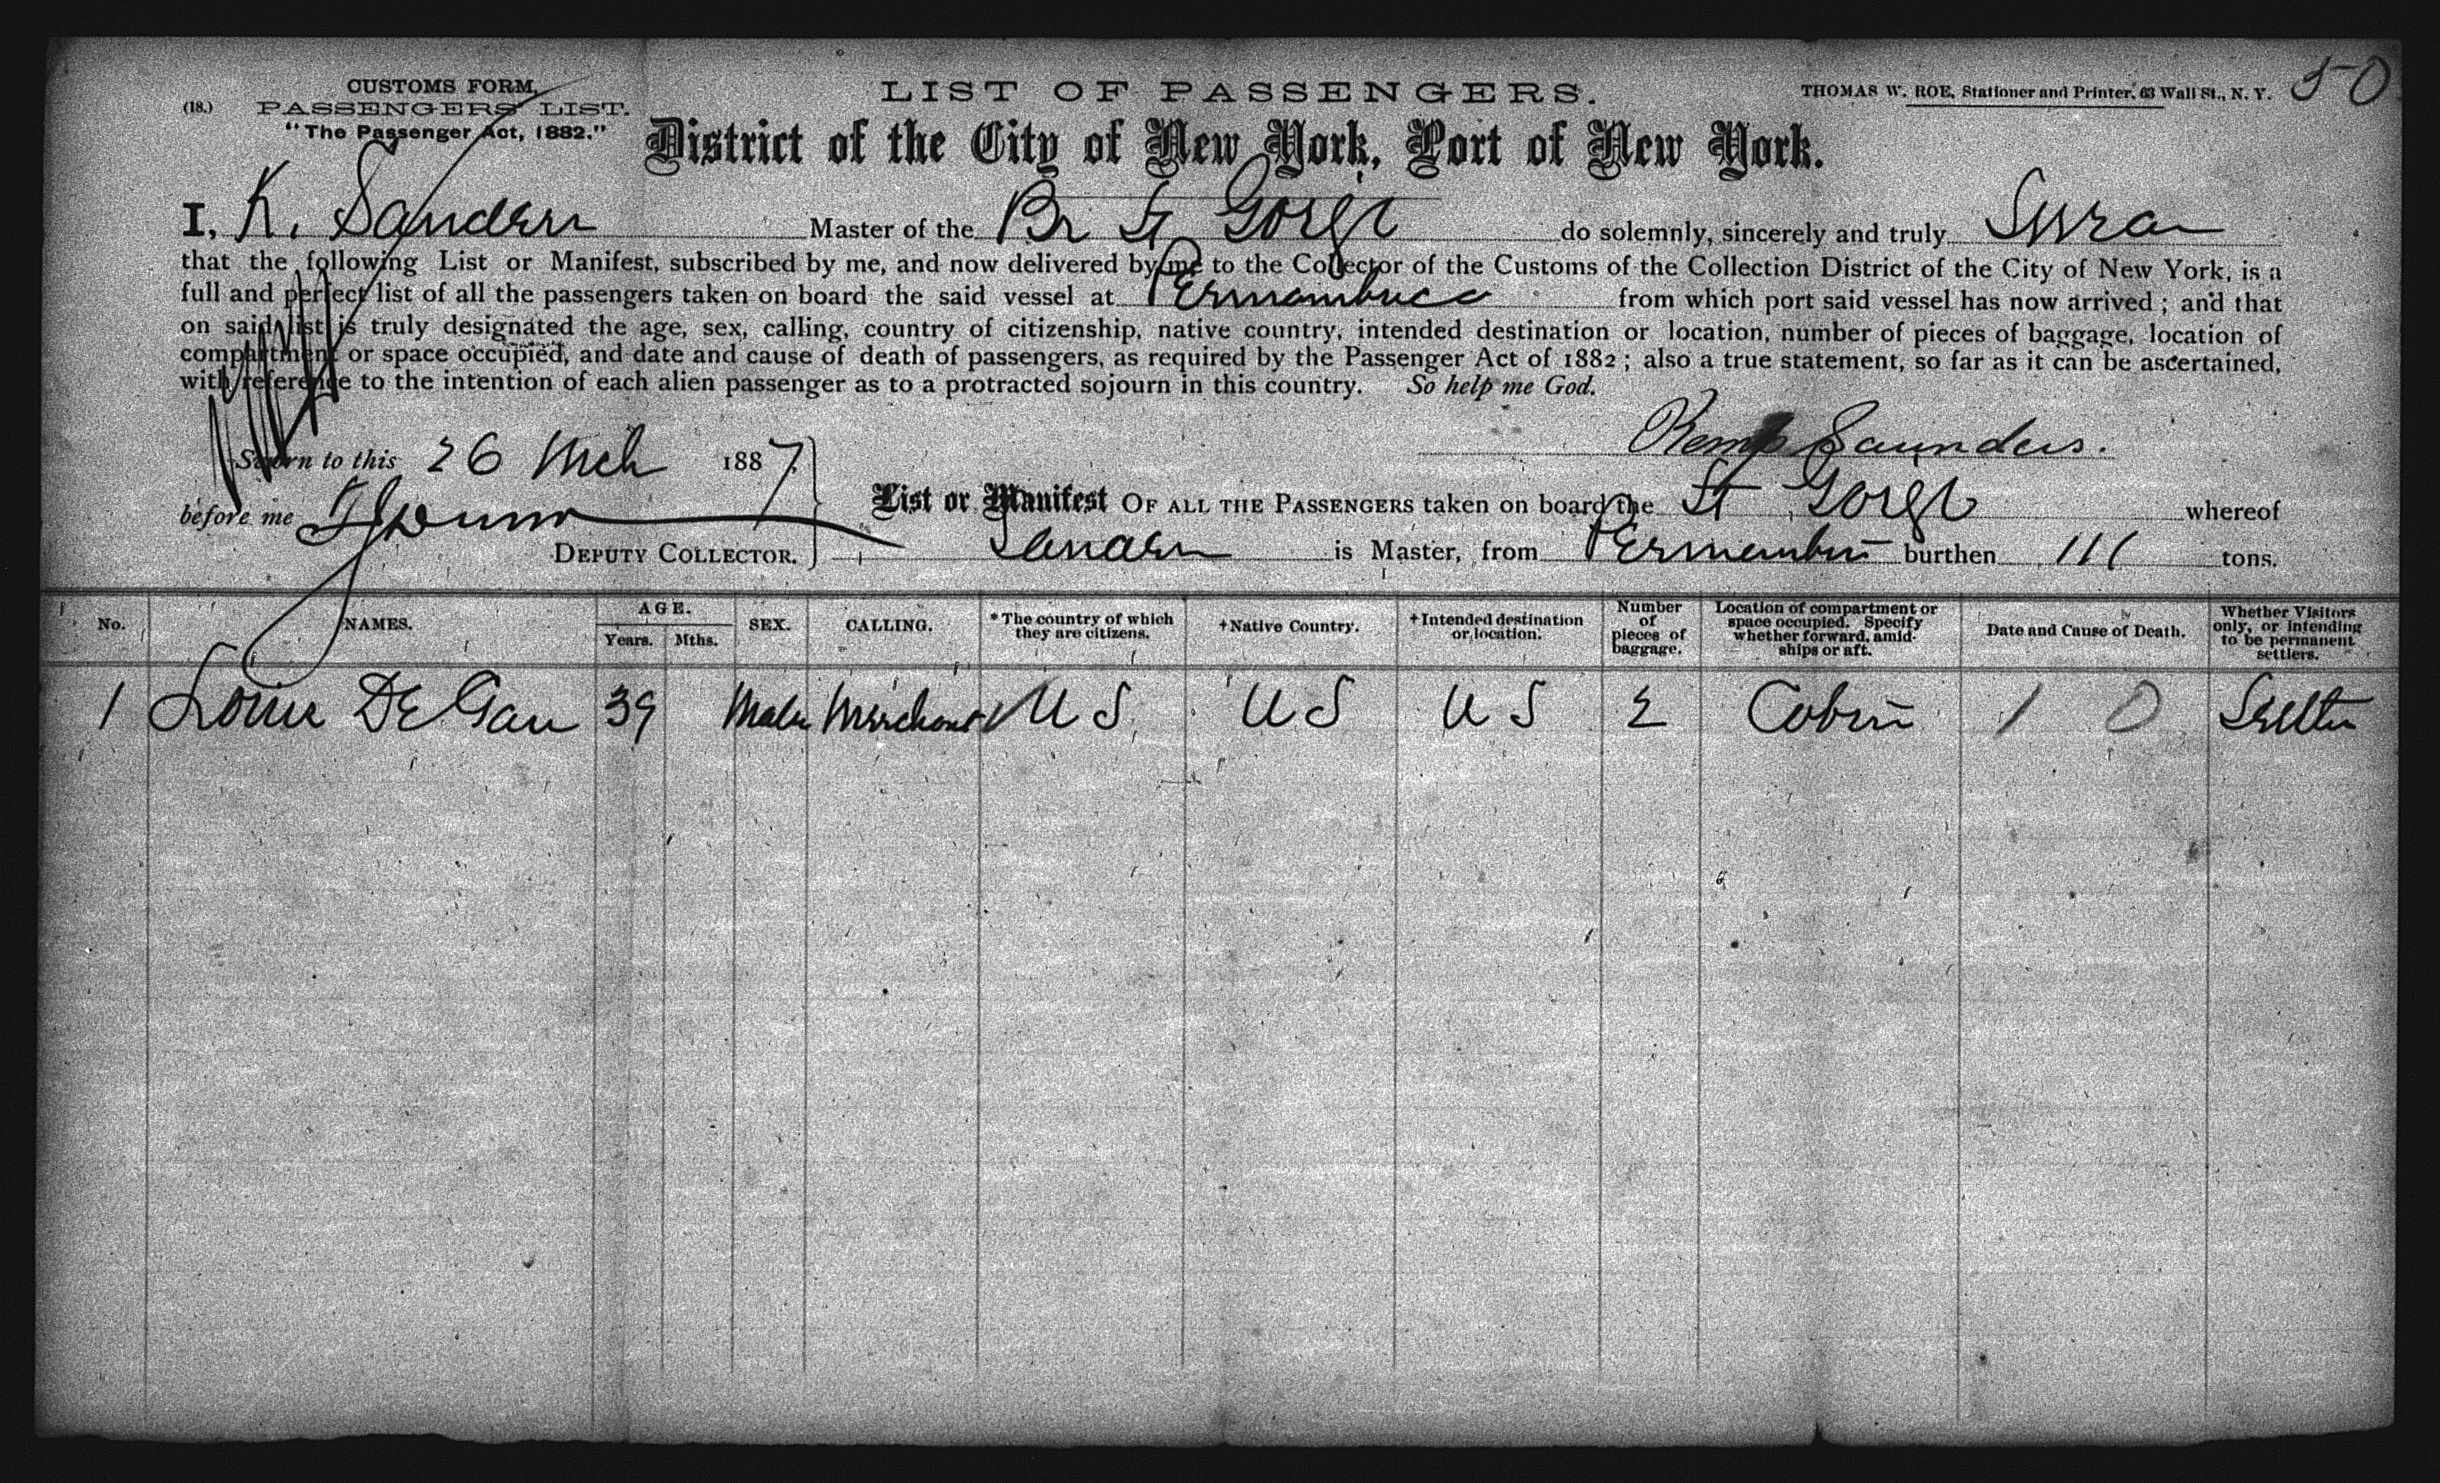 50
CUSTOMS FORM,
(18.) PASSENGERS' LIST.
"The Passenger Act, 1882."
LIST OF PASSENGERS.
THOMAS W. ROE, Stationer and Printer, 63 Wall St., N. Y.
District of the City of New York, Port of New York.
I, K. Sandern Master of the Br St Gorge do solemnly, sincerely and truly Swra
that the following List or Manifest, subscribed by me, and now delivered by me to the Collector of the Customs of the Collection District of the City of New York, is a
full and perfect list of all the passengers taken on board the said vessel at Permambuco from which port said vessel has now arrived; and that
on said list is truly designated the age, sex, calling, country of citizenship, native country, intended destination or location, number of pieces of baggage, location of
compartment or space occupied, and date and cause of death of passengers, as required by the Passenger Act of 1882; also a true statement, so far as it can be ascertained,
with reference to the intention of each alien passenger as to a protracted sojourn in this country. So help me God.
Kemp Saunders.
Sworn to this 26 Mch 1887.
before me
DEPUTY COLLECTOR.
List or Manifest OF ALL THE PASSENGERS taken on board the St Gorge whereof
Sandern is Master, from burthen 111 tons.
No. NAMES. AGE. Years. Mths. SEX. CALLING. *The country of which they are citizens. +Native Country. +Intended destination or location. Number of pieces of baggage. Location of compartment or space occupied. Specify whether forward, amidships or aft. Date and Cause of Death. Whether Visitors only, or intending to be permanent settlers.
1 Louis De Gau 39 Male Merchant U S U S U S 2 Cabin 1 0 Settler